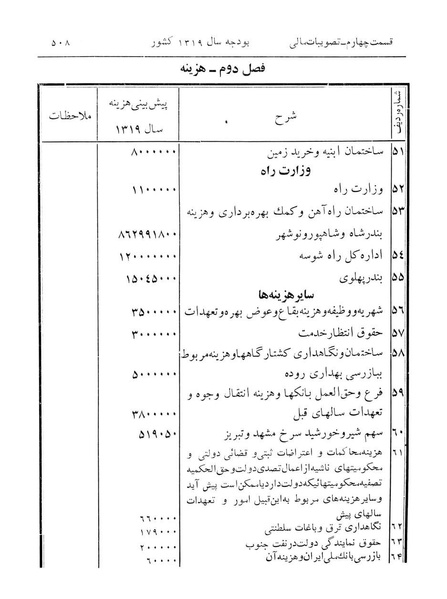 قسمت چهارم ـ تصویبات مالی بودجه سال ۱۳۱۹ کشور ۵۰۸
فصل دوم ـ هزینه
شماره ردیف شرح پیش بینی هزینه سال ۱۳۱۹ ملاحظات
۵۱ ساختمان ابنیه و خرید زمین ۸۰۰۰۰۰۰
وزارت راه
۵۲ وزارت راه ۱۱۰۰۰۰۰
۵۳ ساختمان راه آهن و کمک بهره برداری و هزینه
بندرشاه و شاهپور و نوشهر ۸۶۲۹۹۱۸۰۰
۵۴ اداره کل راه شوسه ۱۲۰۰۰۰۰۰۰
۵۵ بندرپهلوی ۱۵۰۴۵۰۰۰
سایر هزینه ها
۵۶ شهریه و وظیفه و هزینه بقاع و عوض بهره و تعهدات ۳۵۰۰۰۰۰
۵۷ حقوق انتظار خدمت ۳۰۰۰۰۰۰
۵۸ ساختمان و نگاهداری کشتارگاهها و هزینه مربوط
ببازرسی بهداری روده ۵۰۰۰۰۰۰
۵۹ فرع و حق العمل بانکها و هزینه انتقال وجوه و
تعهدات سالهای قبل ۳۸۰۰۰۰۰
۶۰ سهم شیر و خورشید سرخ مشهد و تبریز ۵۱۹۰۵۰
۶۱ هزینه محاکمات و اعتراضات ثبتی و قضائی دولتی و
محکومیتهای ناشیه از اعمال تصدی دولت و حق الحکمیه
تصفیه محکومیتهائیکه دولت دارد یا ممکن است پیش آید
و سایر هزینه های مربوط به این قبیل امور و تعهدات
سالهای پیش ۶۶۰۰۰۰
۶۲ نگاهداری ترق و باغات سلطنتی ۱۷۹۰۰۰
۶۳ حقوق نمایندگی دولت در نفت جنوب ۲۰۰۰۰۰
۶۴ بازرسی بانک ملی ایران و هزینه آن ۶۰۰۰۰